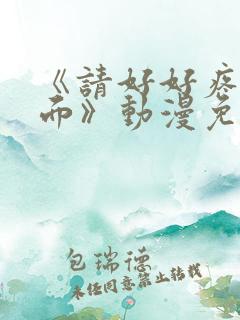 《請好好疼
而》動漫免
包瑞德
未经同意禁止转载